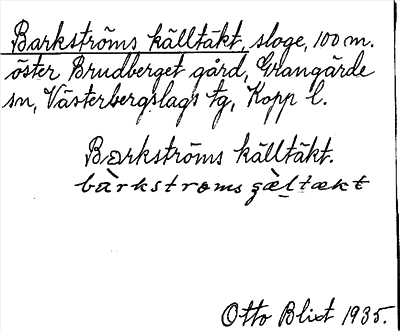 Barkströms källtäkt, sloge, 100 m.
öster Brudberget gård, Grangärde
sn, Västerbergslags tg, Kopp l.
Barkströms källtäkt.
bàrkstroms gæ̀ltækt
Otto Blixt 1935.